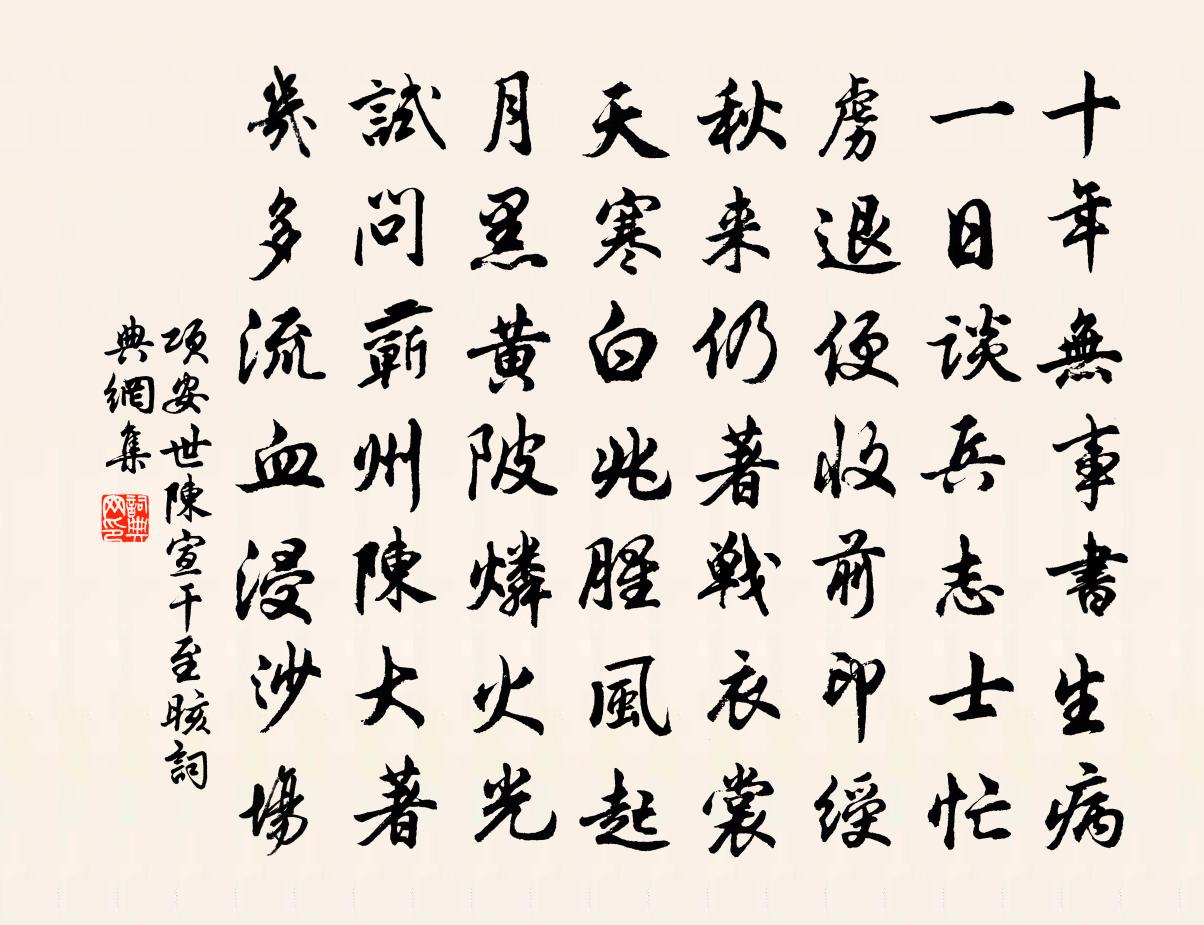 十年無事書生病
一日談兵志士忙
虜退便收前印綬
秋来仍著戰衣裳
天寒白兆腥風起
月黑黄陂燐火光
試問蘄州陳大著
幾多流血浸沙場
項安世陳宣干至晐詞
典網集
詞典
网印